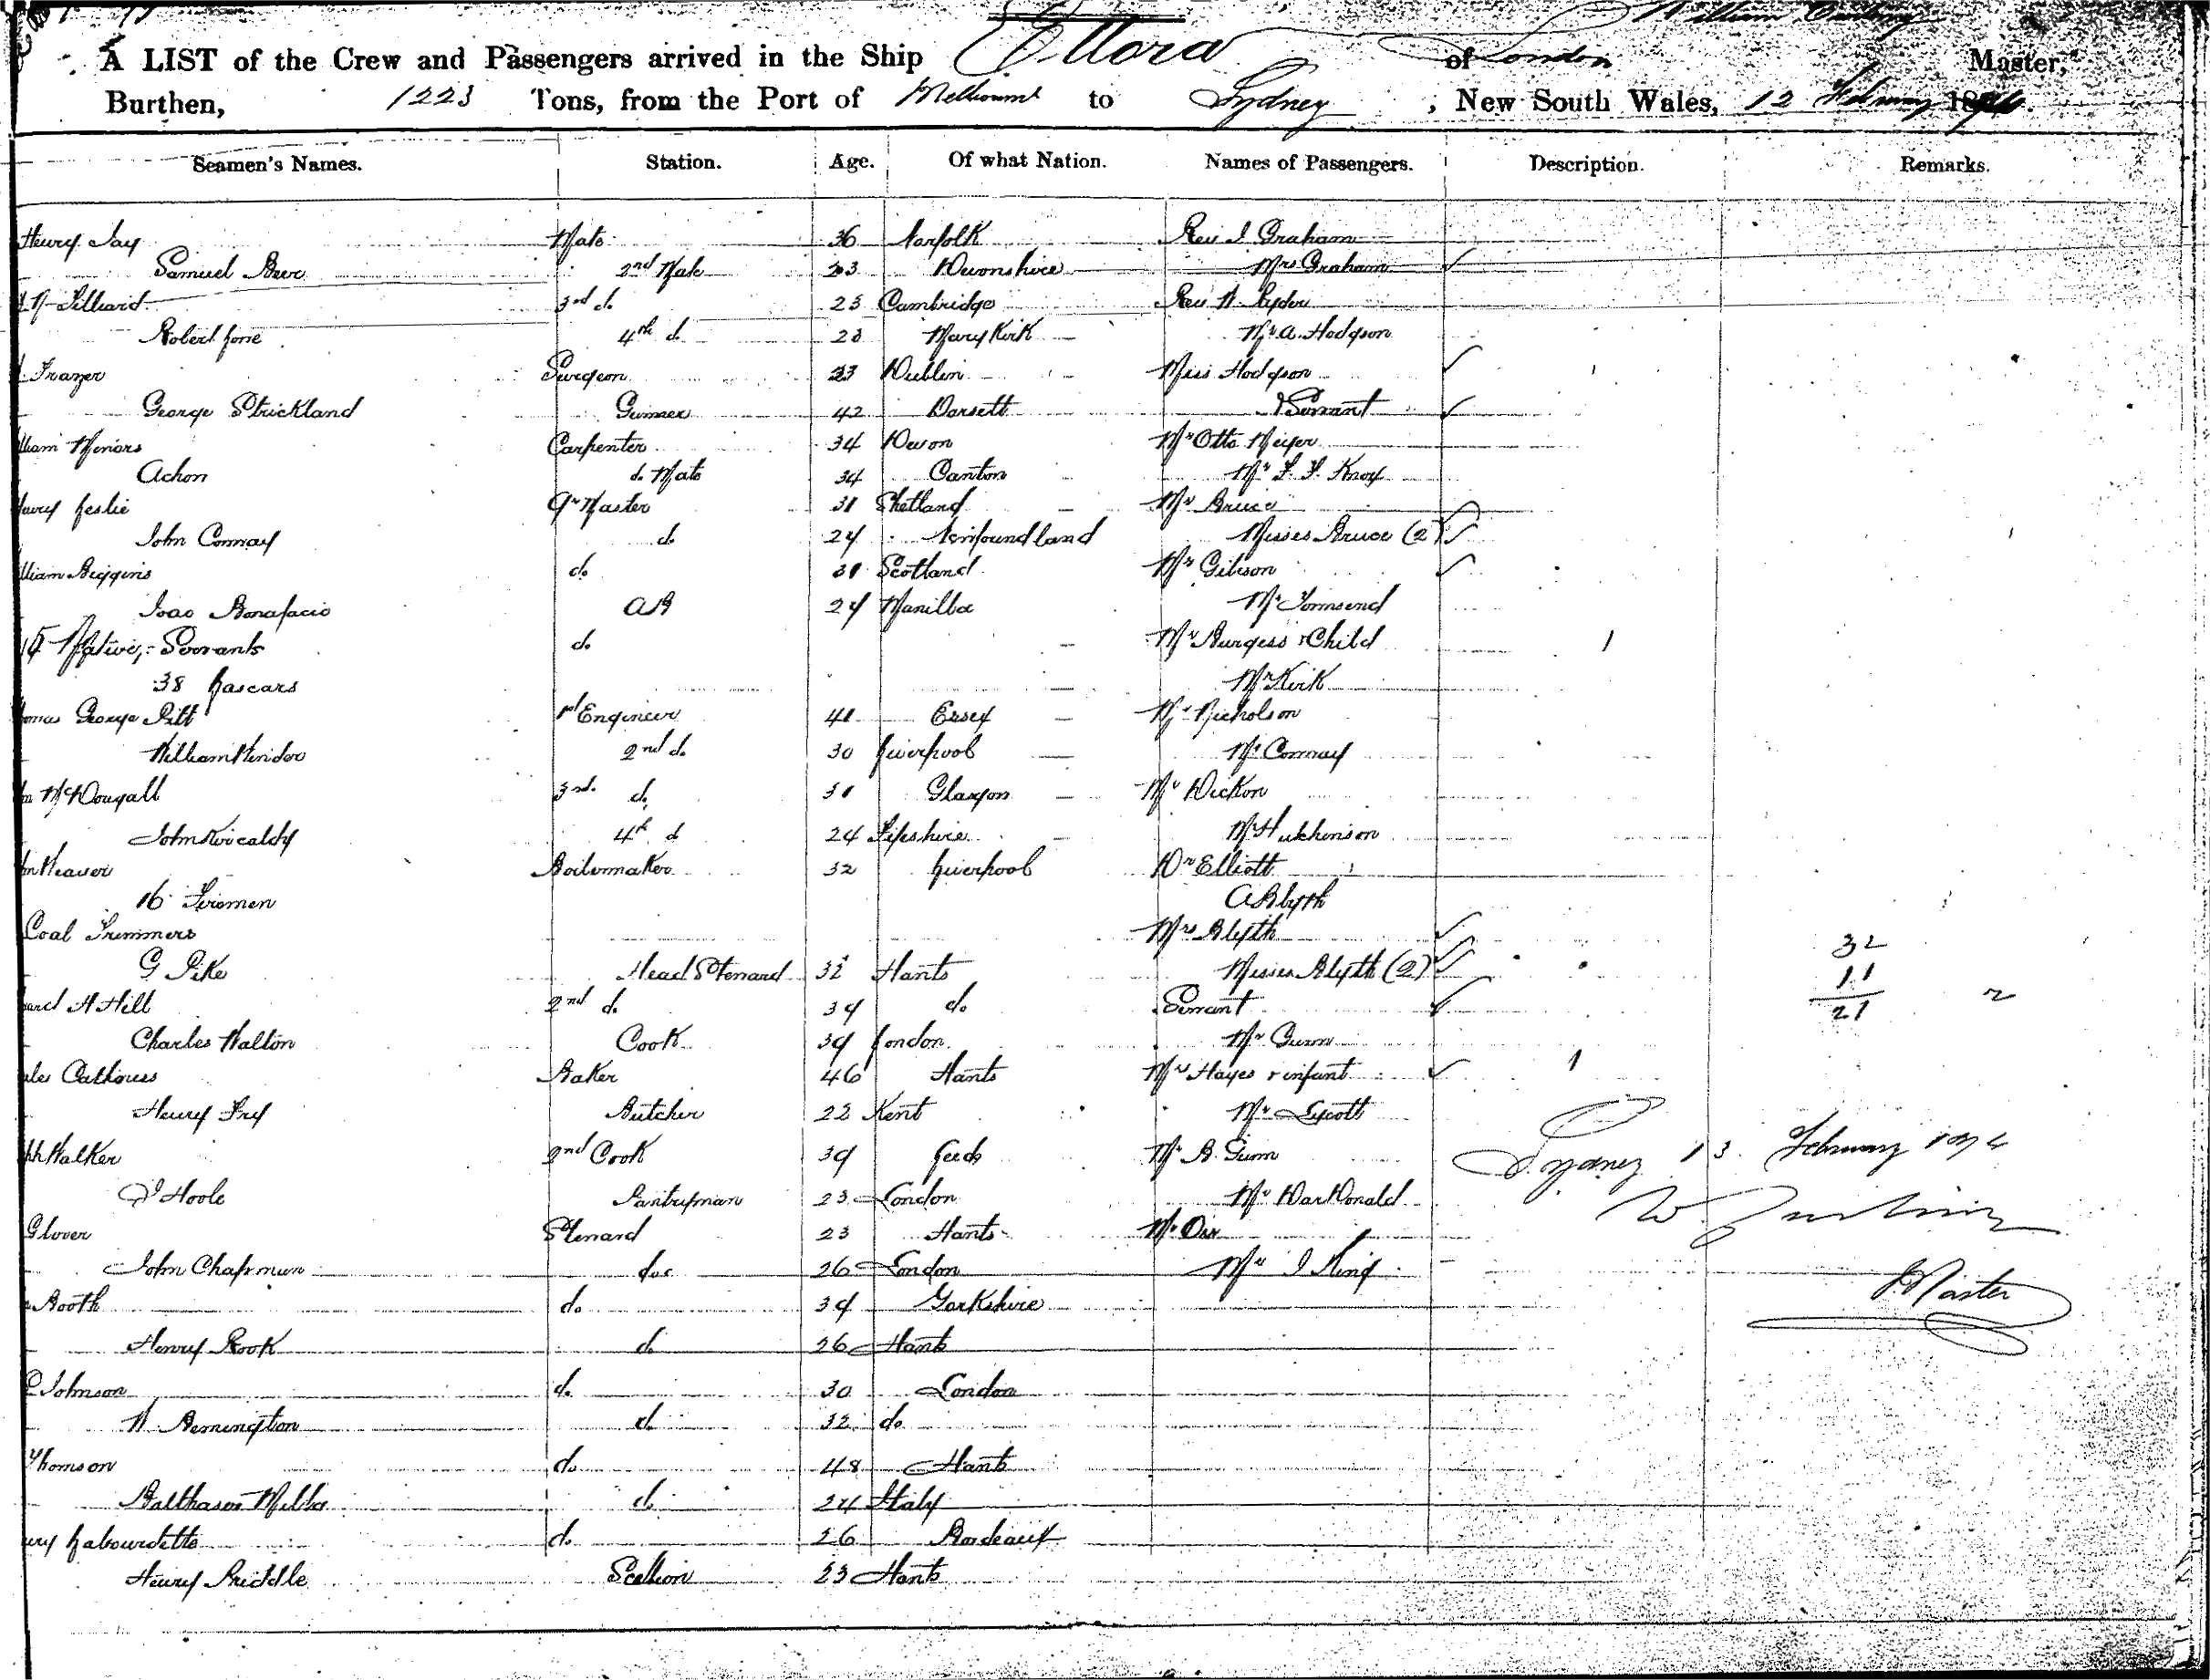 William
A LIST of the Crew and Passengers arrived in the Ship Ellora of London Master,
Burthen, 1223 Tons, from the Port of Melbourne to Sydney, New South Wales, 12 February 18
Seamen's Names. Station. Age. Of what Nation. Names of Passengers. Description. Remarks.
Henry Jay Mate 36 Norfolk Rev J Graham
Samuel 2nd Mate 23 Devonshire Mrs Graham ✓
Lilliard 3rd do 23 Cambridge Rev
Robert 4th do 20 Mary Kirk Mr A. Hodgson
Frazer Surgeon 23 Dublin Miss Hodgson ✓
George Strickland Gunner 42 Dorsett Servant ✓
lliam Carpenter 34 Devon Mr Otto Meyer
Achon do Mate 34 Canton Mr Knox
Henry Leslie Qr Master 31 Shetland Mr Bruce ✓
John Conway do 24 Newfoundland Misses Bruce (2) ✓
lliam Biggins do 31 Scotland Mr Gibson ✓
Joao Bonafacio AB 24 Manilla Mr Townsend
Native Servants do Mr Burgess & Child 1
38 Lascars Mr Kirk
omas George Pitt 1st Engineer 41 Essex Mr Nicholson
William 2nd do 30 Liverpool Mr Conway
McDougall 3rd do 31 Glasgow Mr Dickon
John Kircaldy 4th do 24 Fifeshire Mr Hutchinson
Weaver Boilermaker 32 Liverpool Dr Elliott
16 Firemen A Blyth
Coal Trimmers Mrs Blyth ✓ 32
G Pike Head Steward 32 Hants Misses Blyth (2) ✓ 11
H Hill 2nd do 39 do Servant ✓ 21
Charles Walton Cook 39 London Mr Gunn
Baker 46 Hants Mrs Hayes & infant ✓ 1
Henry Fry Butcher 22 Kent Mr Lycott
Walker 2nd Cook 39 Leeds Mr B. Gunn Sydney 13 February
J Hoole Pantryman 23 London Mr MacDonald
Glover Steward 23 Hants Mr Orr
John Chapman do 26 London Mr J King Master
Booth do 39 Yorkshire
Henry Rook do 26 Hants
Johnson do 30 London
W Remington do 32 do
Thomson do 48 Hants
Balthasar do 24 Italy
Labourdette do 26 Bordeaux
Henry Priddle Scullion 23 Hants